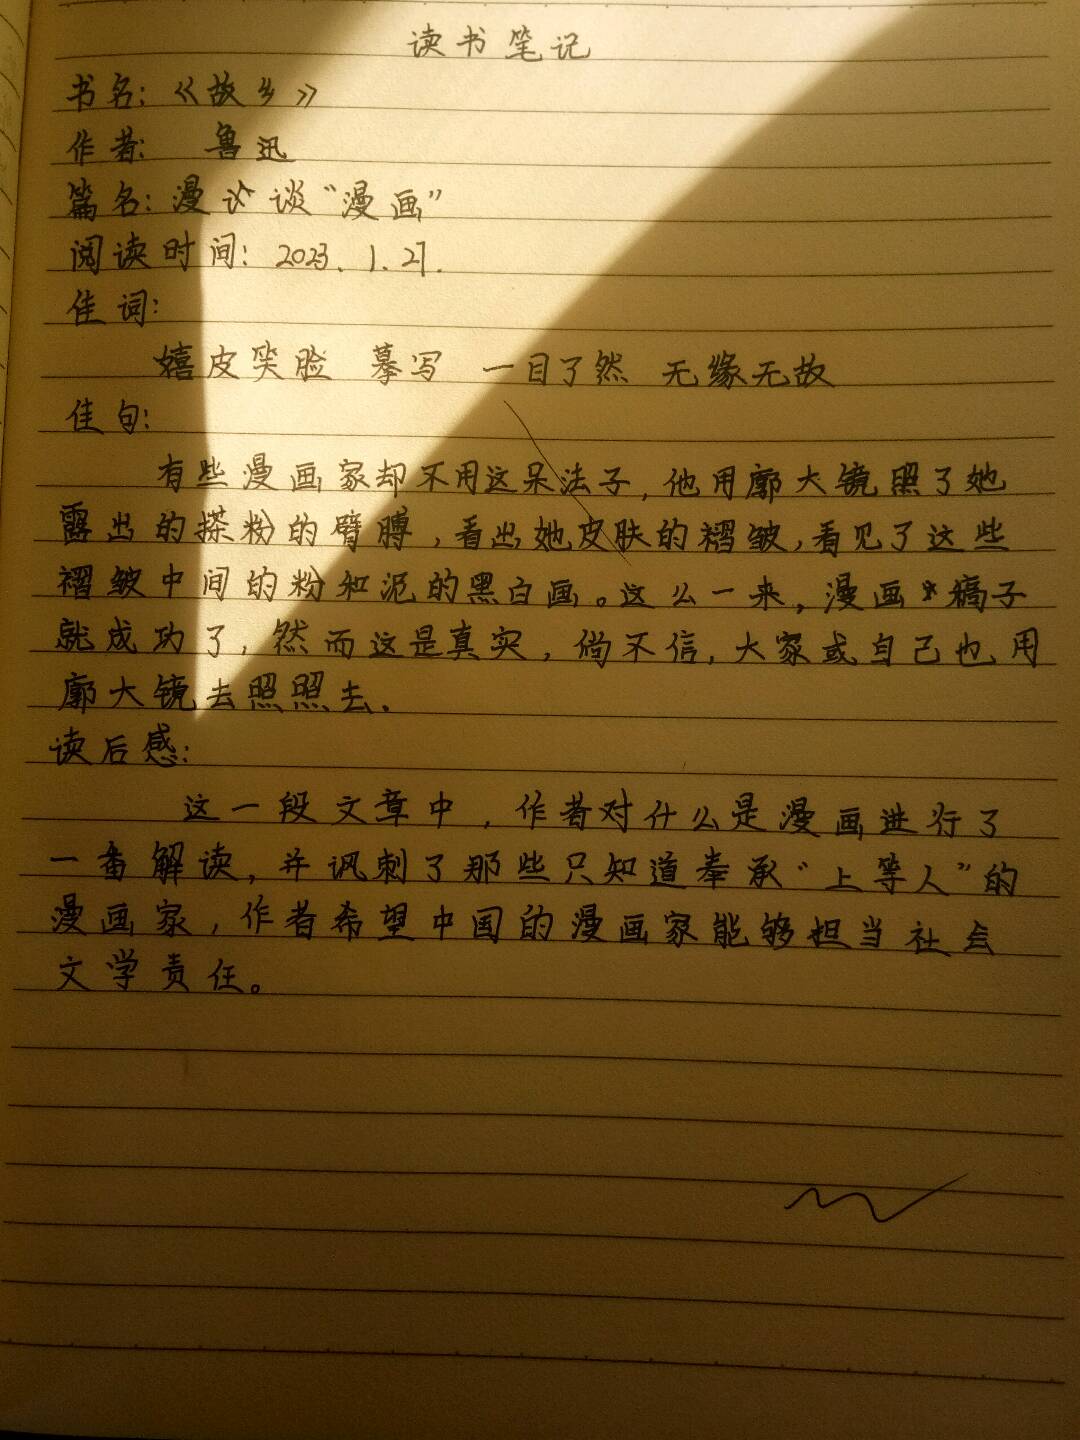 读书笔记
书名:《故乡》
作者: 鲁迅
篇名:漫谈“漫画”
阅读时间: 2023.1.27.
佳词:
嬉皮笑脸 摹写 一目了然 无缘无故
佳句:
有些漫画家却不用这呆法子,他用廓大镜照了她
露出的搽粉的臂膊,看出她皮肤的褶皱,看见了这些
褶皱中间的粉和泥的黑白画。这么一来,漫画稿子
就成功了,然而这是真实,倘不信,大家或自己也用
廓大镜去照照去.
读后感:
这一段文章中,作者对什么是漫画进行了
一番解读,并讽刺了那些只知道奉承“上等人”的
漫画家,作者希望中国的漫画家能够担当社会
文学责任。